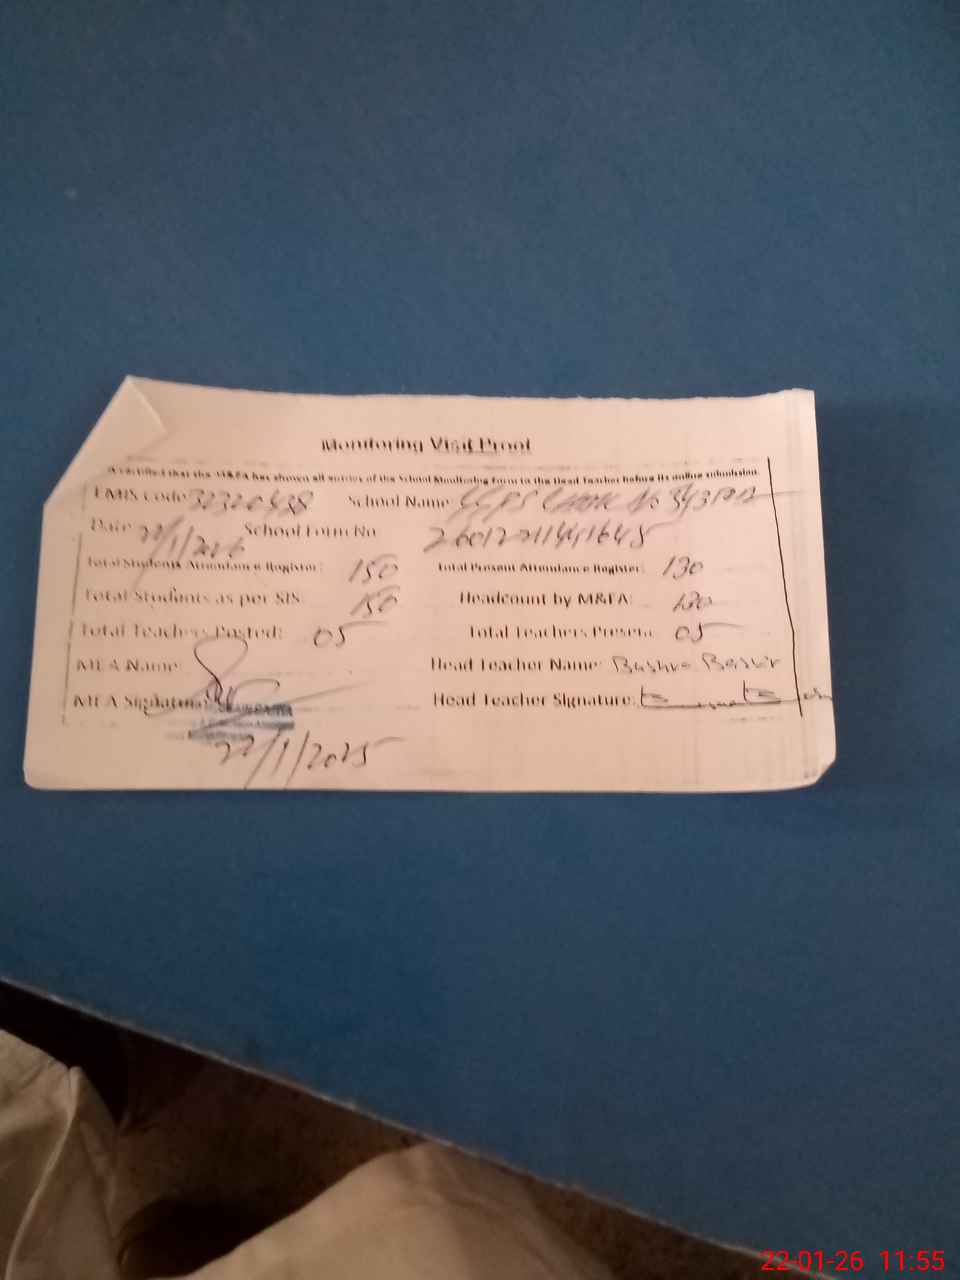 Monitoring Visit Proof
is certified that the M&EA has shown all entries of the School Monitoring Form to the Head Teacher before its online submission.
EMIS Code 32320438 School Name
Date: 22/1/2026 School Form No
Total Students Attendance Register: 150 Total Present Attendance Register: 130
Total Students as per SIS: 150 Headcount by M&EA: 130
Total Teachers Posted: 05 Total Teachers Present: 05
MEA Name: Head Teacher Name: Bushra Bashir
MEA Signature: Head Teacher Signature:
22/1/2025
22-01-26 11:55